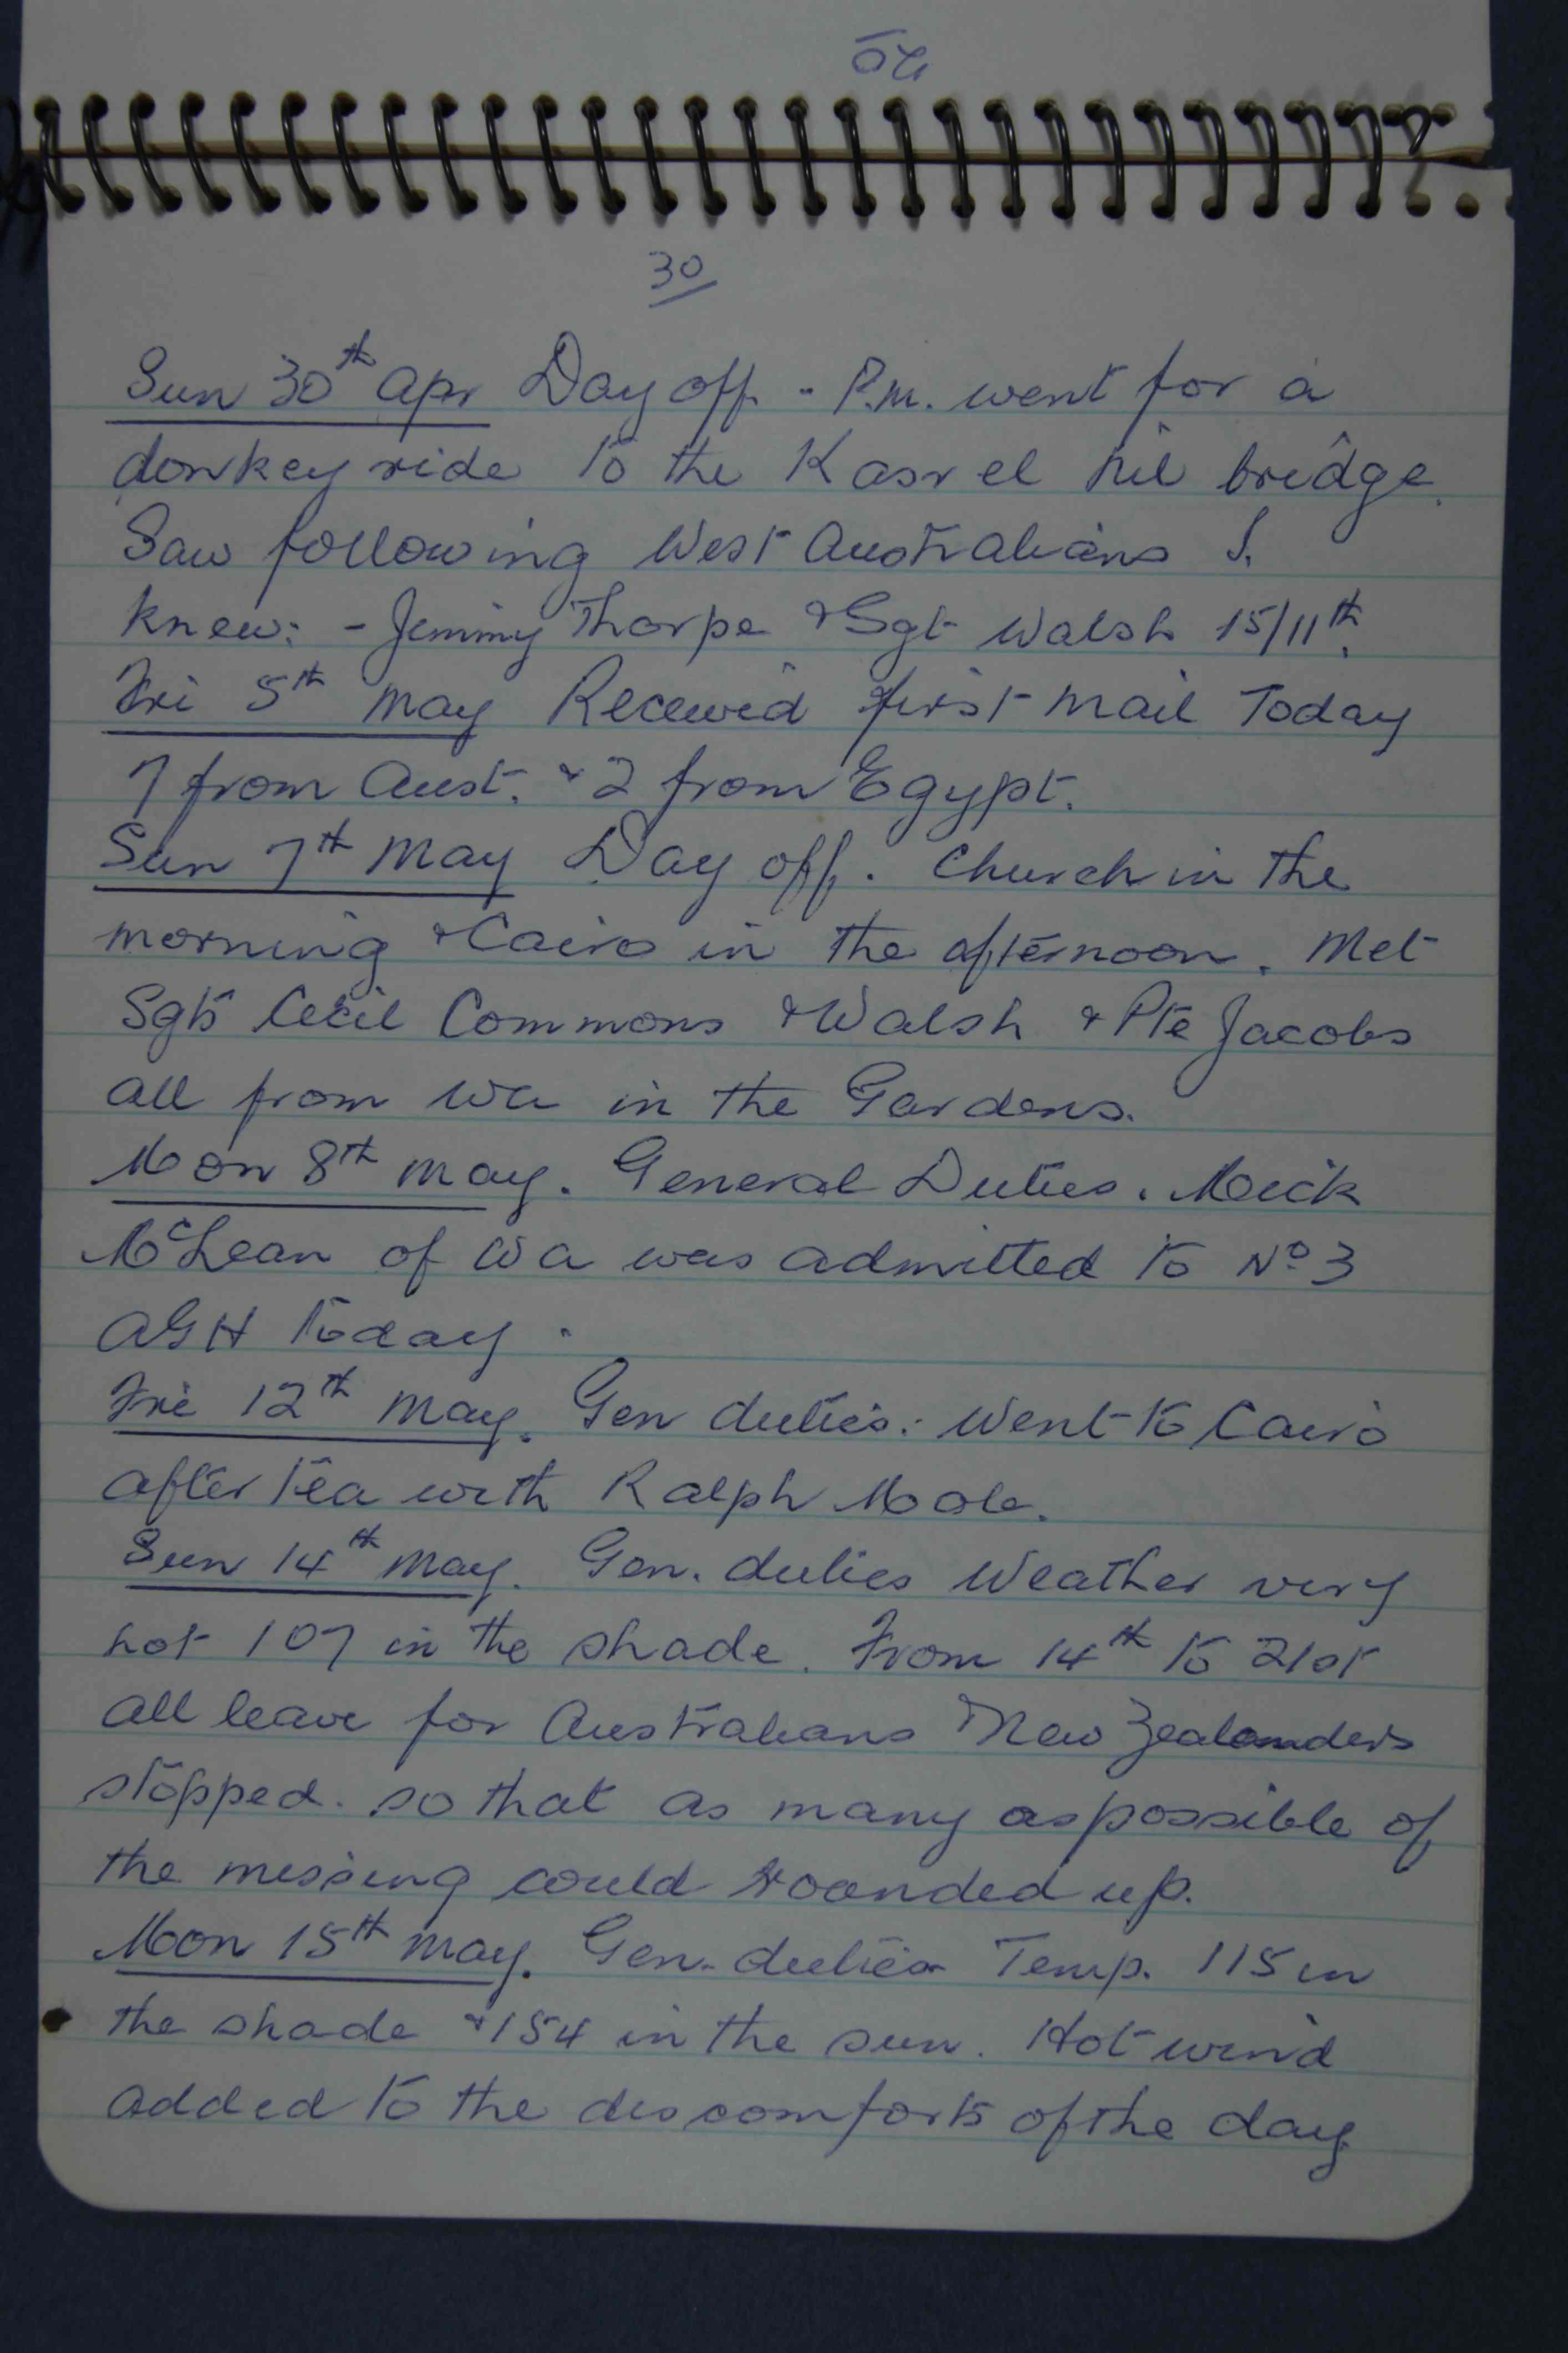 30
Sun 30th Apr Day off - P.m. went for a
donkey ride to the Kasr el Nil bridge.
Saw following West Australians I.
knew: - Jimmy Thorpe & Sgt Walsh 15/11th.
Fri 5th May Received first mail Today
7 from Aust. & 2 from Egypt.
Sun 7th May Day off. Church in the
morning & Cairo in the afternoon. Met
Sgts Cecil Commons & Walsh & Pte Jacobs
all from WA in the Gardens.
Mon 8th May. General Duties. Mick
McLean of WA was admitted to No 3
AGH today.
Fri 12th May. Gen duties. Went to Cairo
after tea with Ralph Mole.
Sun 14th May. Gen. duties Weather very
hot 107 in the shade. From 14th to 21st
all leave for Australians & New Zealanders
stopped. so that as many as possible of
the missing could rounded up.
Mon 15th May. Gen. duties Temp. 115 in
the shade & 154 in the sun. Hot wind
added to the discomforts of the day.